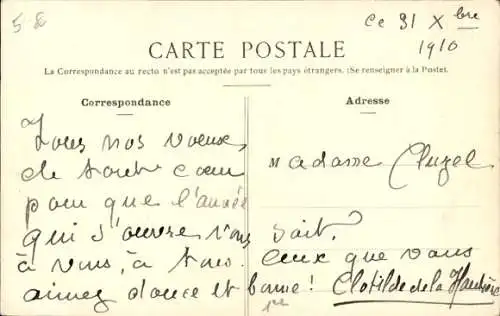 5 E
Ce 31 Xbre
1910
CARTE POSTALE
La Correspondance au recto n'est pas acceptée par tous les pays étrangers. (Se renseigner à la Poste).
Correspondance
Adresse
Tous nos voeux,
de tout coeur
pour que l'année
qui s'ouvre vous
à vous, à tous
aimez douce et bonne!
Madame Cluzel
soit
ceux que vous
Clotilde de la